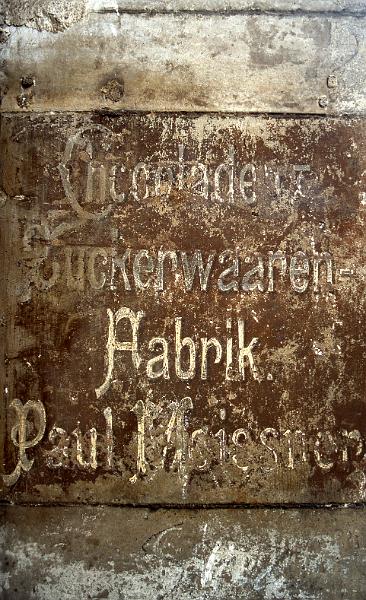 Chocolade
Zuckerwaaren-
Fabrik.
Paul Meissner